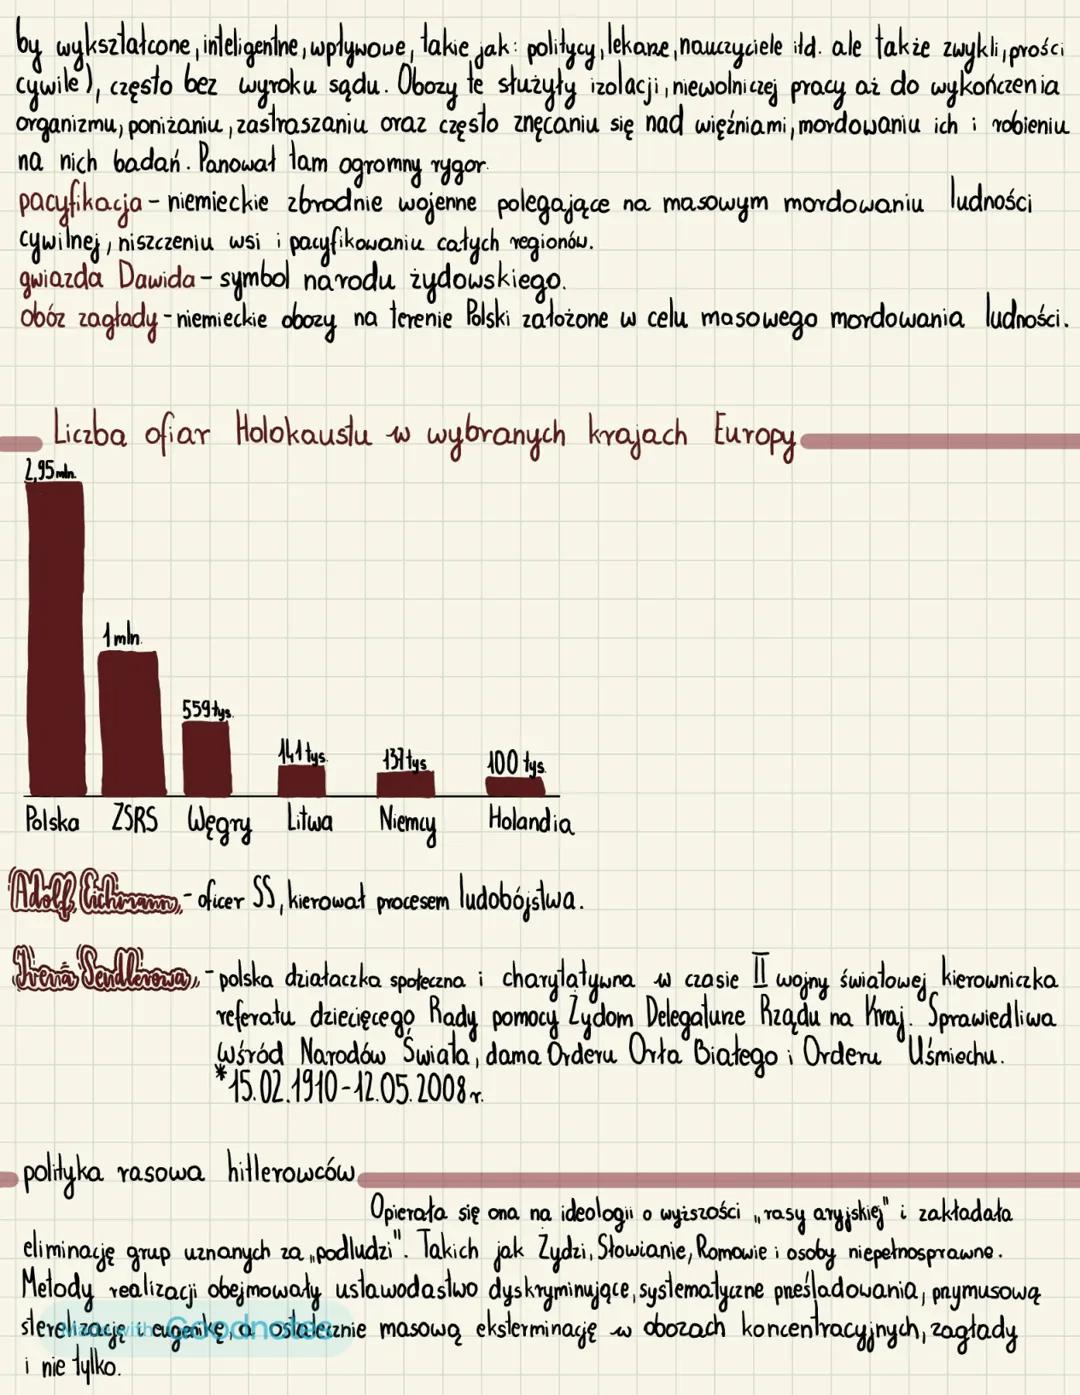 by wykształcone, inteligentne, wpływowe, takie jak: politycy, lekarze, nauczyciele itd. ale także zwykli, prości
cywile), często bez wyroku sądu. Obozy te służyły izolacji, niewolniczej pracy aż do wykończenia
organizmu, poniżaniu, zastraszaniu oraz często znęcaniu się nad więźniami, mordowaniu ich i robieniu
na nich badań. Panował tam ogromny rygor.
pacyfikacja - niemieckie zbrodnie wojenne polegające na masowym mordowaniu ludności
cywilnej, niszczeniu wsi i pacyfikowaniu całych regionów.
gwiazda Dawida - symbol narodu żydowskiego.
obóz zagłady - niemieckie obozy na terenie Polski założone w celu masowego mordowania ludności.
Liczba ofiar Holokaustu w wybranych krajach Europy
2,95 mln.
1 mln.
559 tys.
141 tys.
137 tys.
100 tys.
Polska ZSRS Węgry Litwa Niemcy Holandia
Adolf Eichmann, - oficer SS, kierował procesem ludobójstwa.
Irena Sendlerowa, - polska działaczka społeczna i charytatywna w czasie II wojny światowej, kierowniczka
referatu dziecięcego Rady pomocy Żydom Delegaturze Rządu na Kraj. Sprawiedliwa
Wśród Narodów Świata, dama Orderu Orła Białego i Orderu Uśmiechu.
*15.02.1910 - 12.05.2008 r.
polityka rasowa hitlerowców
Opierała się ona na ideologii o wyższości „rasy aryjskiej" i zakładała
eliminację grup uznanych za „podludzi". Takich jak Żydzi, Słowianie, Romowie i osoby niepełnosprawne.
Metody realizacji obejmowały ustawodastwo dyskryminujące, systematyczne prześladowania, przymusową
sterelizację i eugenikę, a ostatecznie masową eksterminację w obozach koncentracyjnych, zagłady
Made with Goodnotes
i nie tylko.